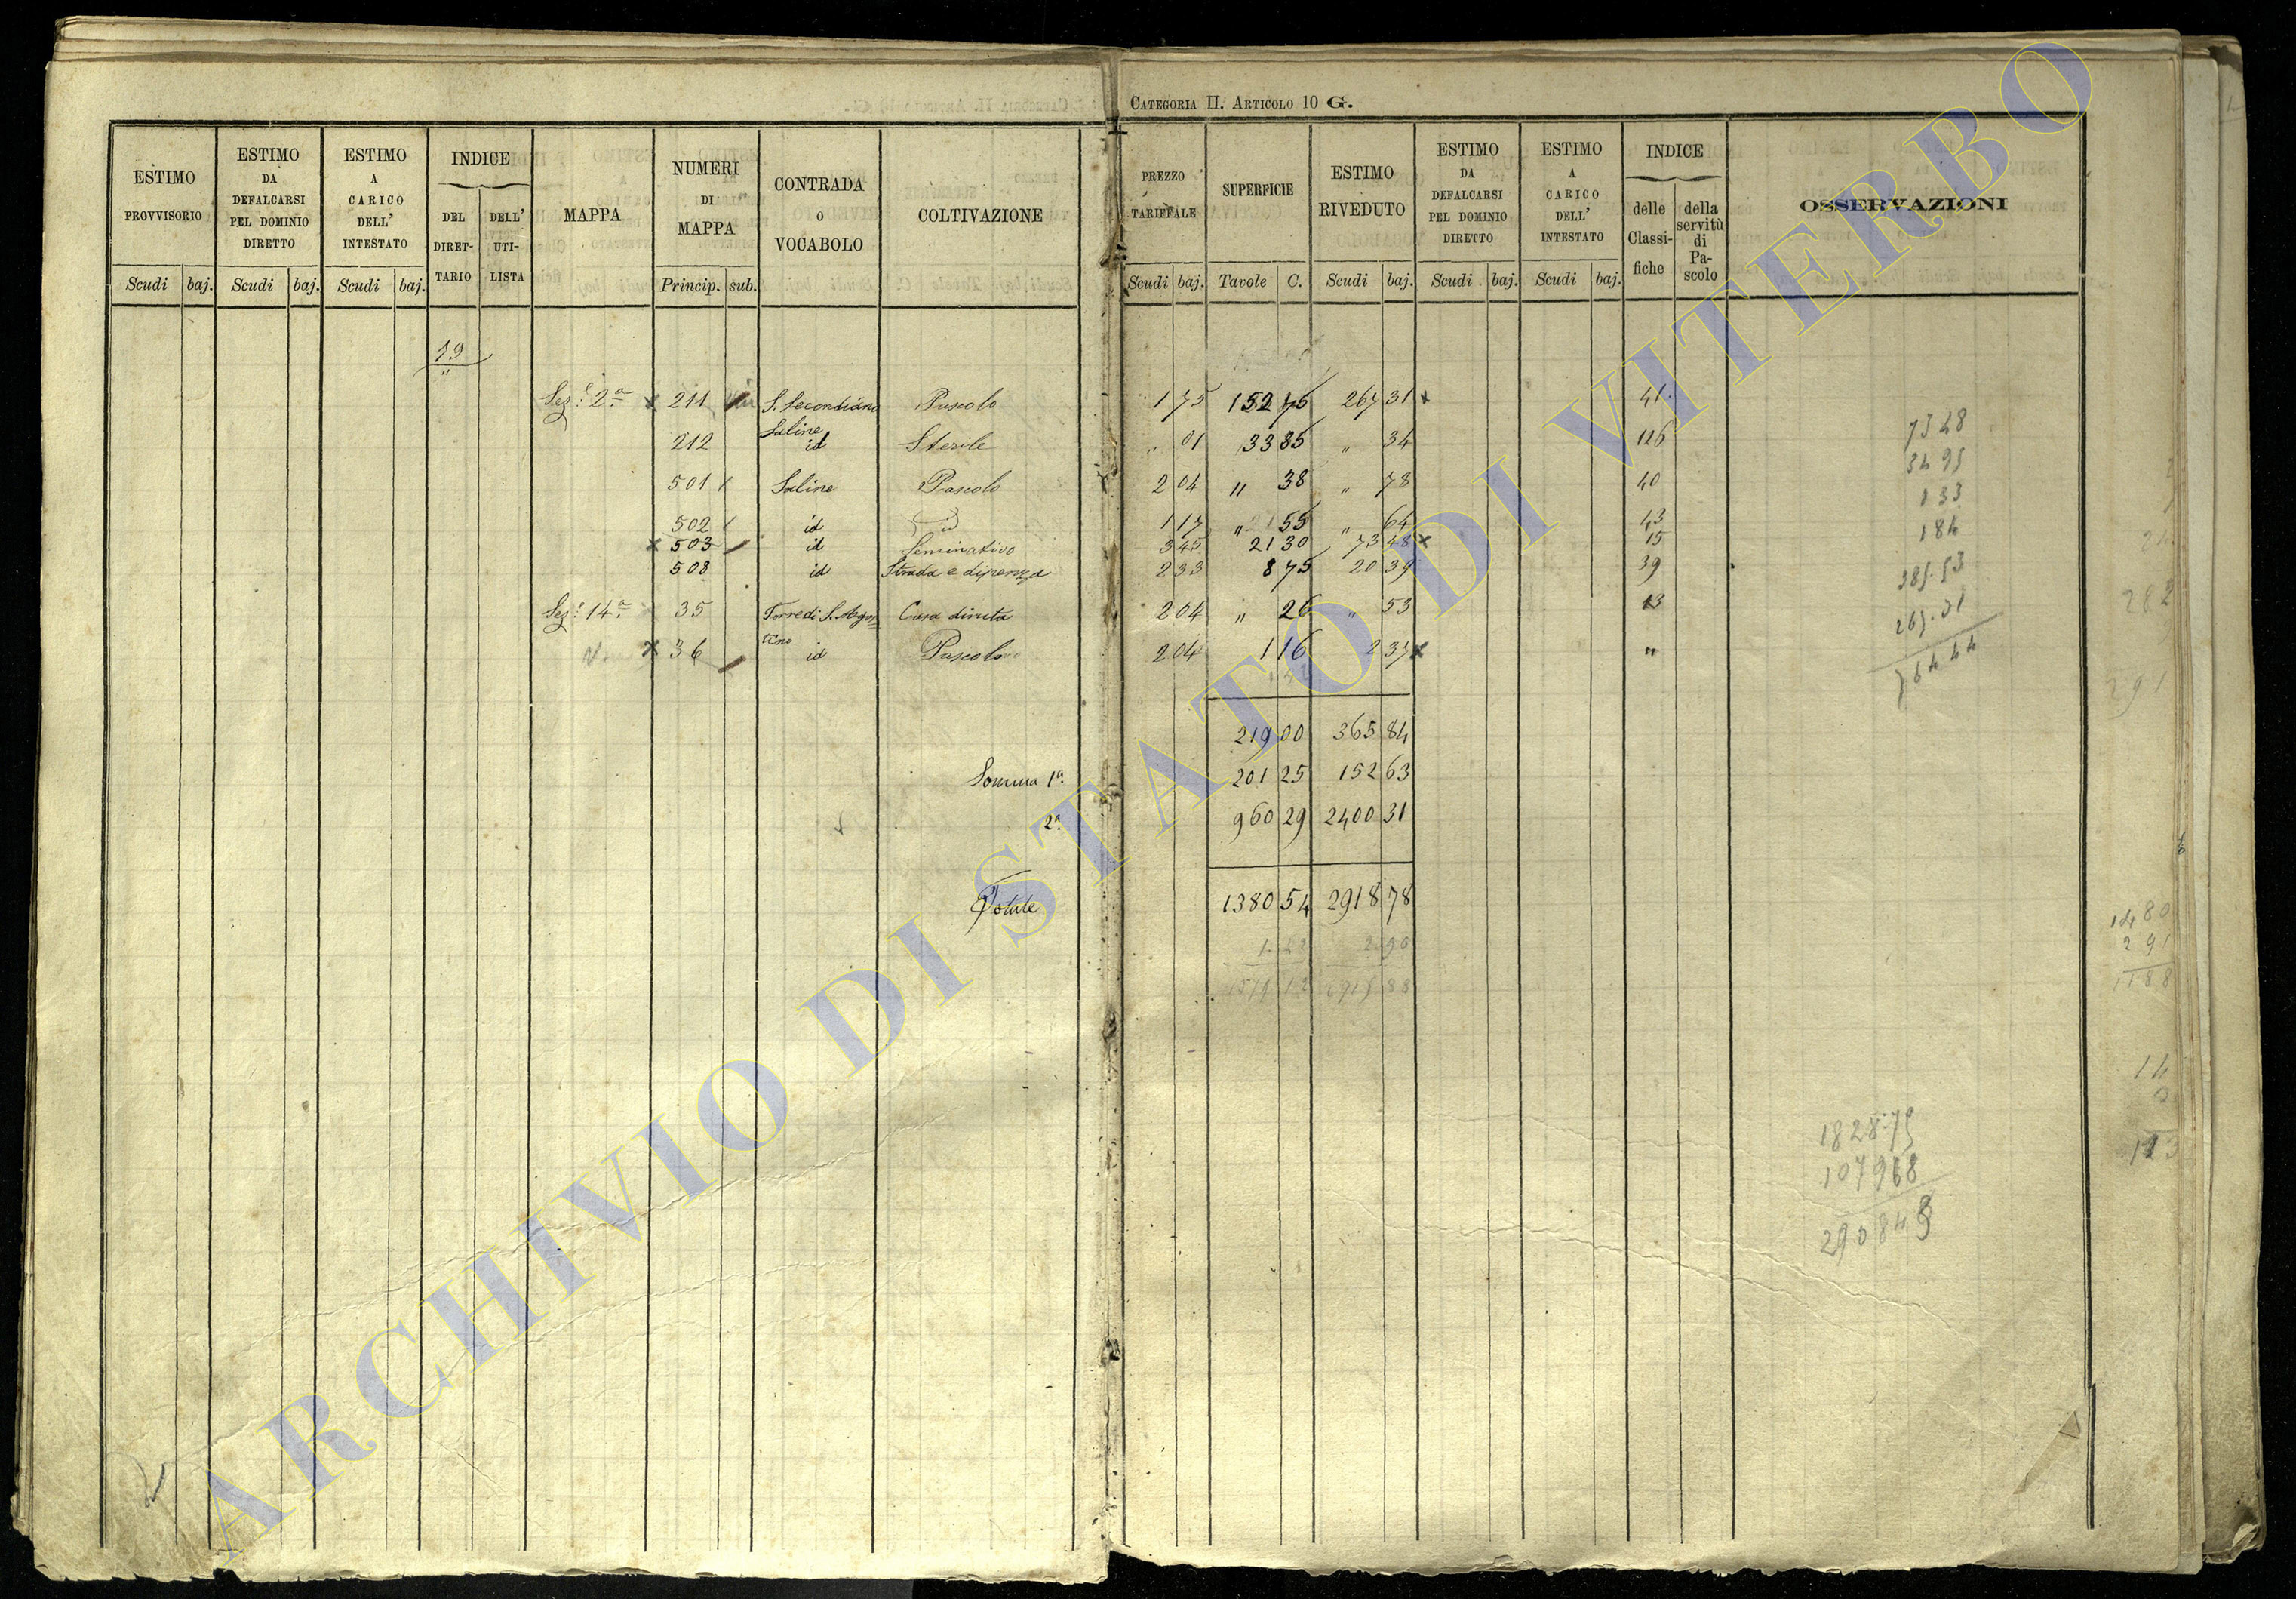 CATEGORIA II. ARTICOLO 10 G.
ESTIMO PROVVISORIO Scudi baj.
ESTIMO DA DEFALCARSI PEL DOMINIO DIRETTO Scudi baj.
ESTIMO A CARICO DELL' INTESTATO Scudi baj.
INDICE DEL DIRET-TARIO DELL' UTI-LISTA
MAPPA
NUMERI DI MAPPA Princip. sub.
CONTRADA O VOCABOLO
COLTIVAZIONE
PREZZO TARIFFALE Scudi baj.
SUPERFICIE Tavole C.
ESTIMO RIVEDUTO Scudi baj.
ESTIMO DA DEFALCARSI PEL DOMINIO DIRETTO Scudi baj.
ESTIMO A CARICO DELL' INTESTATO Scudi baj.
INDICE delle Classi-fiche della servitù di Pa-scolo
OSSERVAZIONI
19
"
Sez.e 2a x 211 S. Secondiano Saline Pascolo 1 75 152 75 267 31 x 41
212 id Sterile " 01 33 85 " 34 126
501 Saline Pascolo 2 04 " 38 " 78 40
502 id id 1 17 " 55 " 64 43
x 503 id Seminativo 3 45 21 30 73 48 x 15
508 id Strada e dipenza 2 33 8 75 20 39 39
Sez.e 14a 35 Torre di S. Agostino Casa diruta 2 04 " 26 " 53 13
x 36 id Pascolo 2 04 1 16 2 37 x "
219 00 365 84
Somma 1a. 201 25 152 63
2a. 960 29 2400 31
Totale 1380 54 2918 78
73 48
34 95
1 33
184
385.53
267.31
764 44
1828.75
1079 68
2908 43
282
291
1480
291
1188
14
113
ARCHIVIO DI STATO DI VITERBO